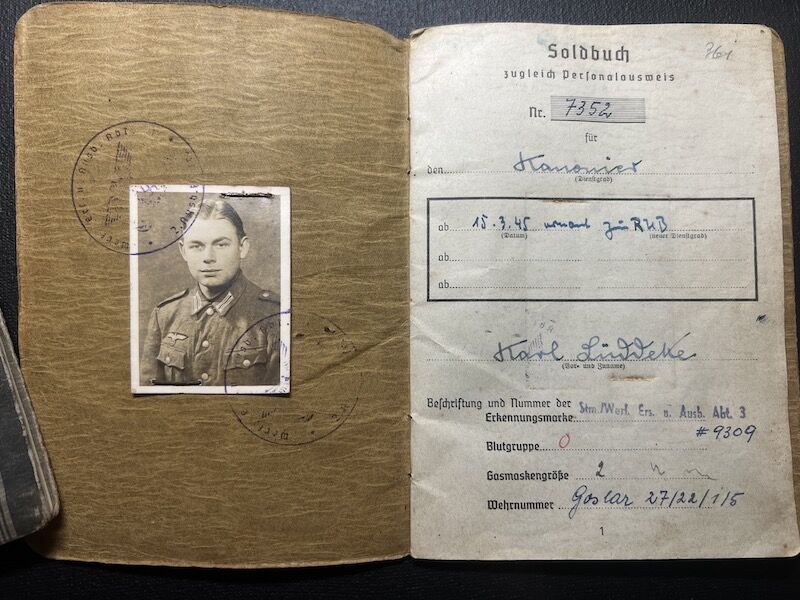 Soldbuch
zugleich Personalausweis
Nr. 7352
für
den Kanonier
(Dienstgrad)
ab 15.3.45 ernannt zum ROB
(Datum) (neuer Dienstgrad)
ab
ab
Karl Lüddeke
(Vor- und Zuname)
Beschriftung und Nummer der
Erkennungsmarke Stm./Werf. Ers. u. Ausb. Abt. 3
#9309
Blutgruppe O
Gasmaskengröße 2
Wehrnummer Goslar 27/22/1/5
1